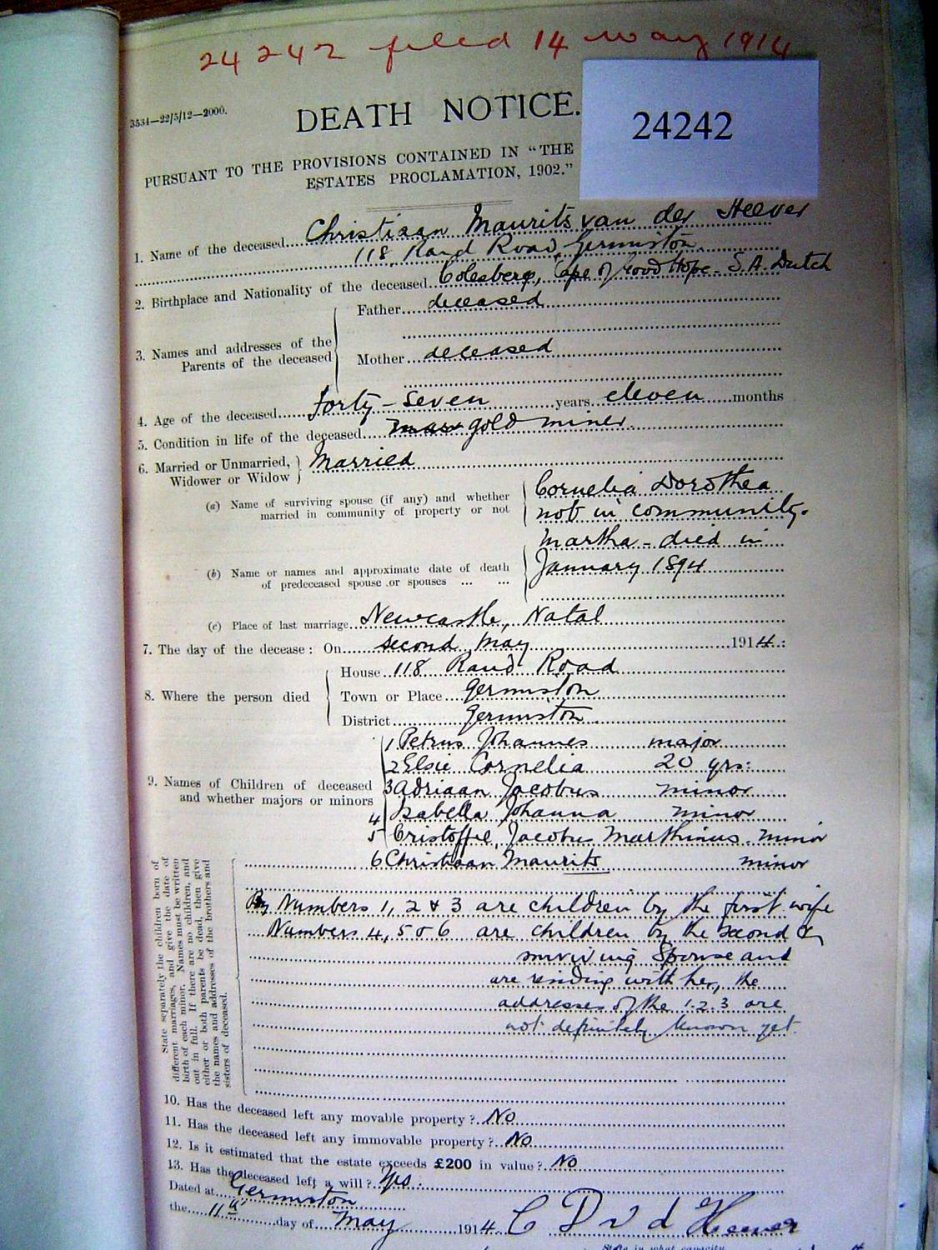 24242 filed 14 May 1914
3534—22/5/12—2000.
DEATH NOTICE.
24242
PURSUANT TO THE PROVISIONS CONTAINED IN "THE
ESTATES PROCLAMATION, 1902."
1. Name of the deceased Christiaan Maurits van der Heever
118, Rand Road, Germiston.
2. Birthplace and Nationality of the deceased Colesberg, Cape of Good Hope. S.A. Dutch
3. Names and addresses of the Parents of the deceased
Father deceased
Mother deceased
4. Age of the deceased Forty-Seven years eleven months
5. Condition in life of the deceased gold miner.
6. Married or Unmarried, Widower or Widow } Married
(a) Name of surviving spouse (if any) and whether married in community of property or not
Cornelia Dorothea
not in community.
(b) Name or names and approximate date of death of predeceased spouse or spouses ... ...
Martha - died in
January 1894
(c) Place of last marriage Newcastle, Natal
7. The day of the decease: On second May 1914:
8. Where the person died
House 118 Rand Road
Town or Place Germiston
District Germiston.
9. Names of Children of deceased and whether majors or minors
1 Petrus Johannes major
2 Elsie Cornelia 20 yrs:
3 Adriaan Jacobus minor
4 Isabella Johanna minor
5 Cristoffel Jacobus Marthinus. minor
6 Christiaan Maurits minor
State separately the children born of
different marriages, and give the date of
birth of each minor. Names must be written
out in full. If there are no children, and
either or both parents be dead, then give
the names and addresses of the brothers and
sisters of deceased.
Numbers 1, 2 & 3 are children by the first wife
Numbers 4, 5 & 6 are children by the second &
surviving Spouse and
are residing with her, the
addresses of the 1.2.3 are
not definitely known yet
10. Has the deceased left any movable property? No
11. Has the deceased left any immovable property? No
12. Is it estimated that the estate exceeds £200 in value? No
13. Has the deceased left a will? Yes.
Dated at Germiston
the 11th day of May 1914 C D v d Heever
State in what capacity